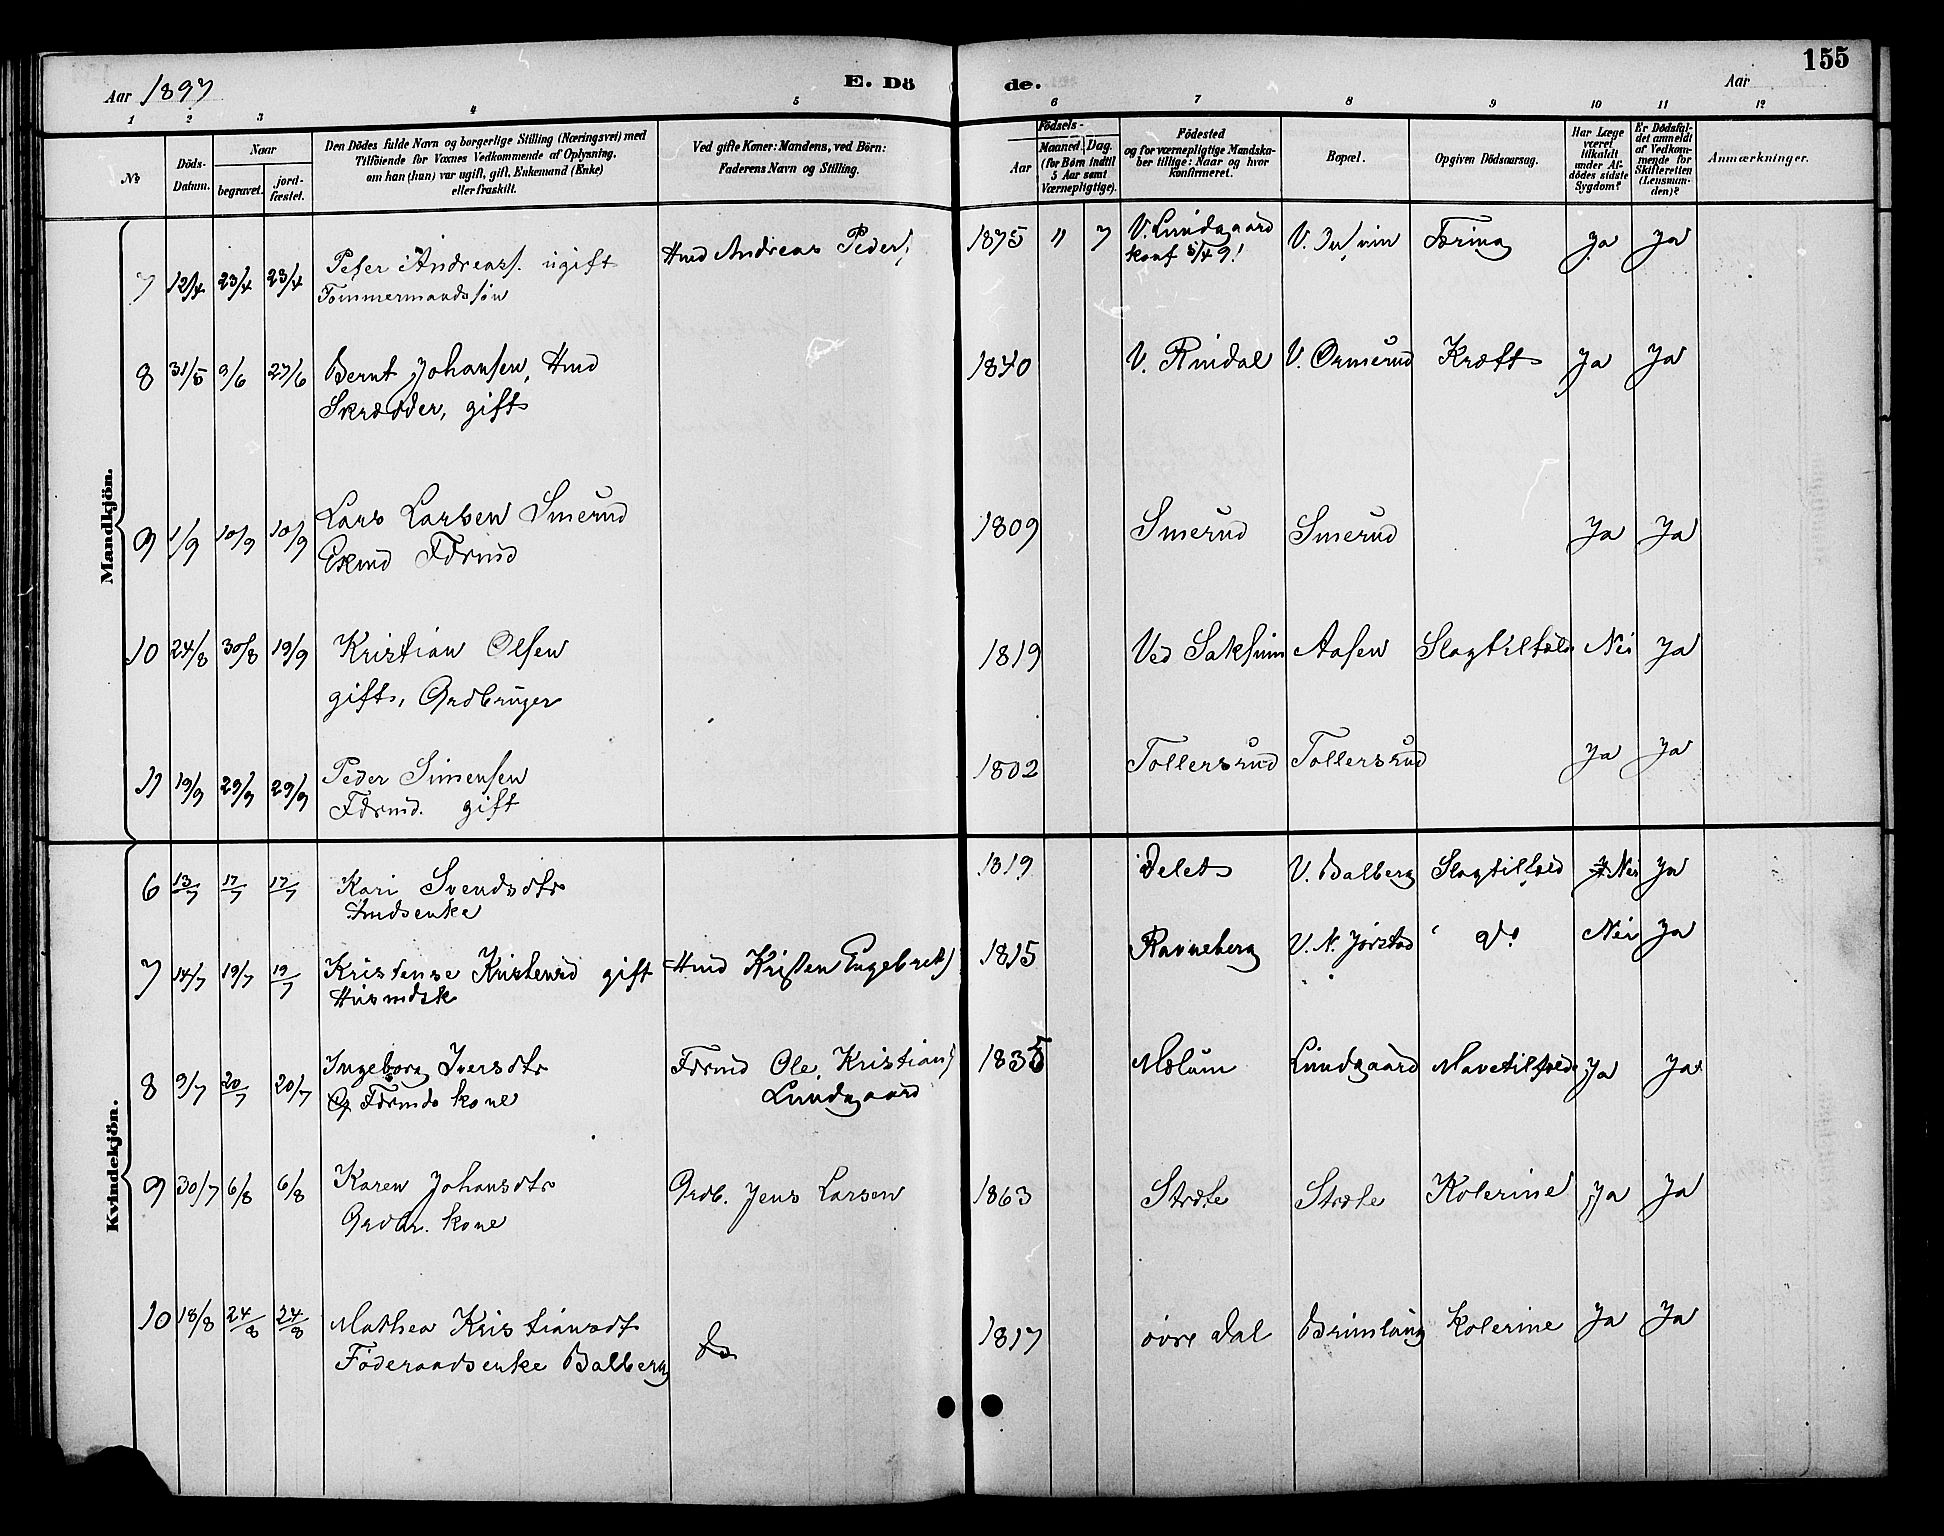 155
Aar 1897 E. Dö de. Aar
1 2 3 4 5 6 7 8 9 10 11 12
№
Döds-Datum.
Naar
begravet.
jord-fæstet.
Den Dödes fulde Navn og borgerlige Stilling (Næringsvei) med
Tilföiende for Voxnes Vedkommende af Oplysning,
om han (hun) var ugift, gift, Enkemand (Enke)
eller fraskilt.
Ved gifte Koner: Mandens, ved Börn:
Faderens Navn og Stilling.
Födsels-
Aar
Maaned. Dag.
(for Börn indtil
5 Aar samt
Værnepligtige).
Födested
og for værnepligtige Mandska-
ber tillige: Naar og hvor
konfirmeret.
Bopæl.
Opgiven Dödsaarsag.
Har Læge
været
tilkaldt
under Af-
dödes sidste
Sygdom?
Er Dödsfal-
det anmeldt
af Vedkom-
mende for
Skifteretten
(Lensman-
den)?
Anmærkninger.
Mandkjön.
7 12/4 23/4 23/4 Peter Andreass. ugift Hmd Andreas Peders. 1875 11 7 V. Lundgaard V. Tæring Ja Ja
Tømmermandssøn konf
8 31/5 9/6 27/6 Bernt Johansen, Hmd 1840 V. Rindal V. Ormerud Kræft Ja Ja
Skrædder, gift
9 1/9 10/9 10/9 Lars Larsen Smerud 1809 Smerud Smerud Ja Ja
Ekmd Fdrmd
10 24/8 30/8 19/9 Kristian Olsen 1819 Ved Saksum Aasen Slagtilfæld Nei Ja
gift, Grdbruger
11 19/9 29/9 29/9 Peder Simensen 1802 Tollersrud Tollersrud Ja Ja
Fdrmd. gift
Kvindekjön.
6 13/7 17/7 17/7 Kari Svendsdtr 1819 Delet V. Balberg Slagtilfæld Nei Ja
Hmdsenke
7 14/7 19/7 19/7 Kristense Kristensd gift Hmd Kristen Engebrets 1815 Ravneberg V. N. Jørstad do Nei Ja
Husmdsk
8 9/7 20/7 20/7 Ingeborg Iversdtr Fdrmd Ole Kristians 1835 Mælum Lundgaard Mavetilfælde Ja Ja
Fdrmds kone Lundgaard
9 30/7 6/8 6/8 Karen Johansdtr Grdb. Jens Larsen 1863 Stræte Stræte Kolerine Ja Ja
Grdbr. kone
10 18/8 24/8 24/8 Mathea Kristiansdt 1817 øvre Dal Brimlaug Kolerine Ja Ja
Føderaadsenke Balberg do